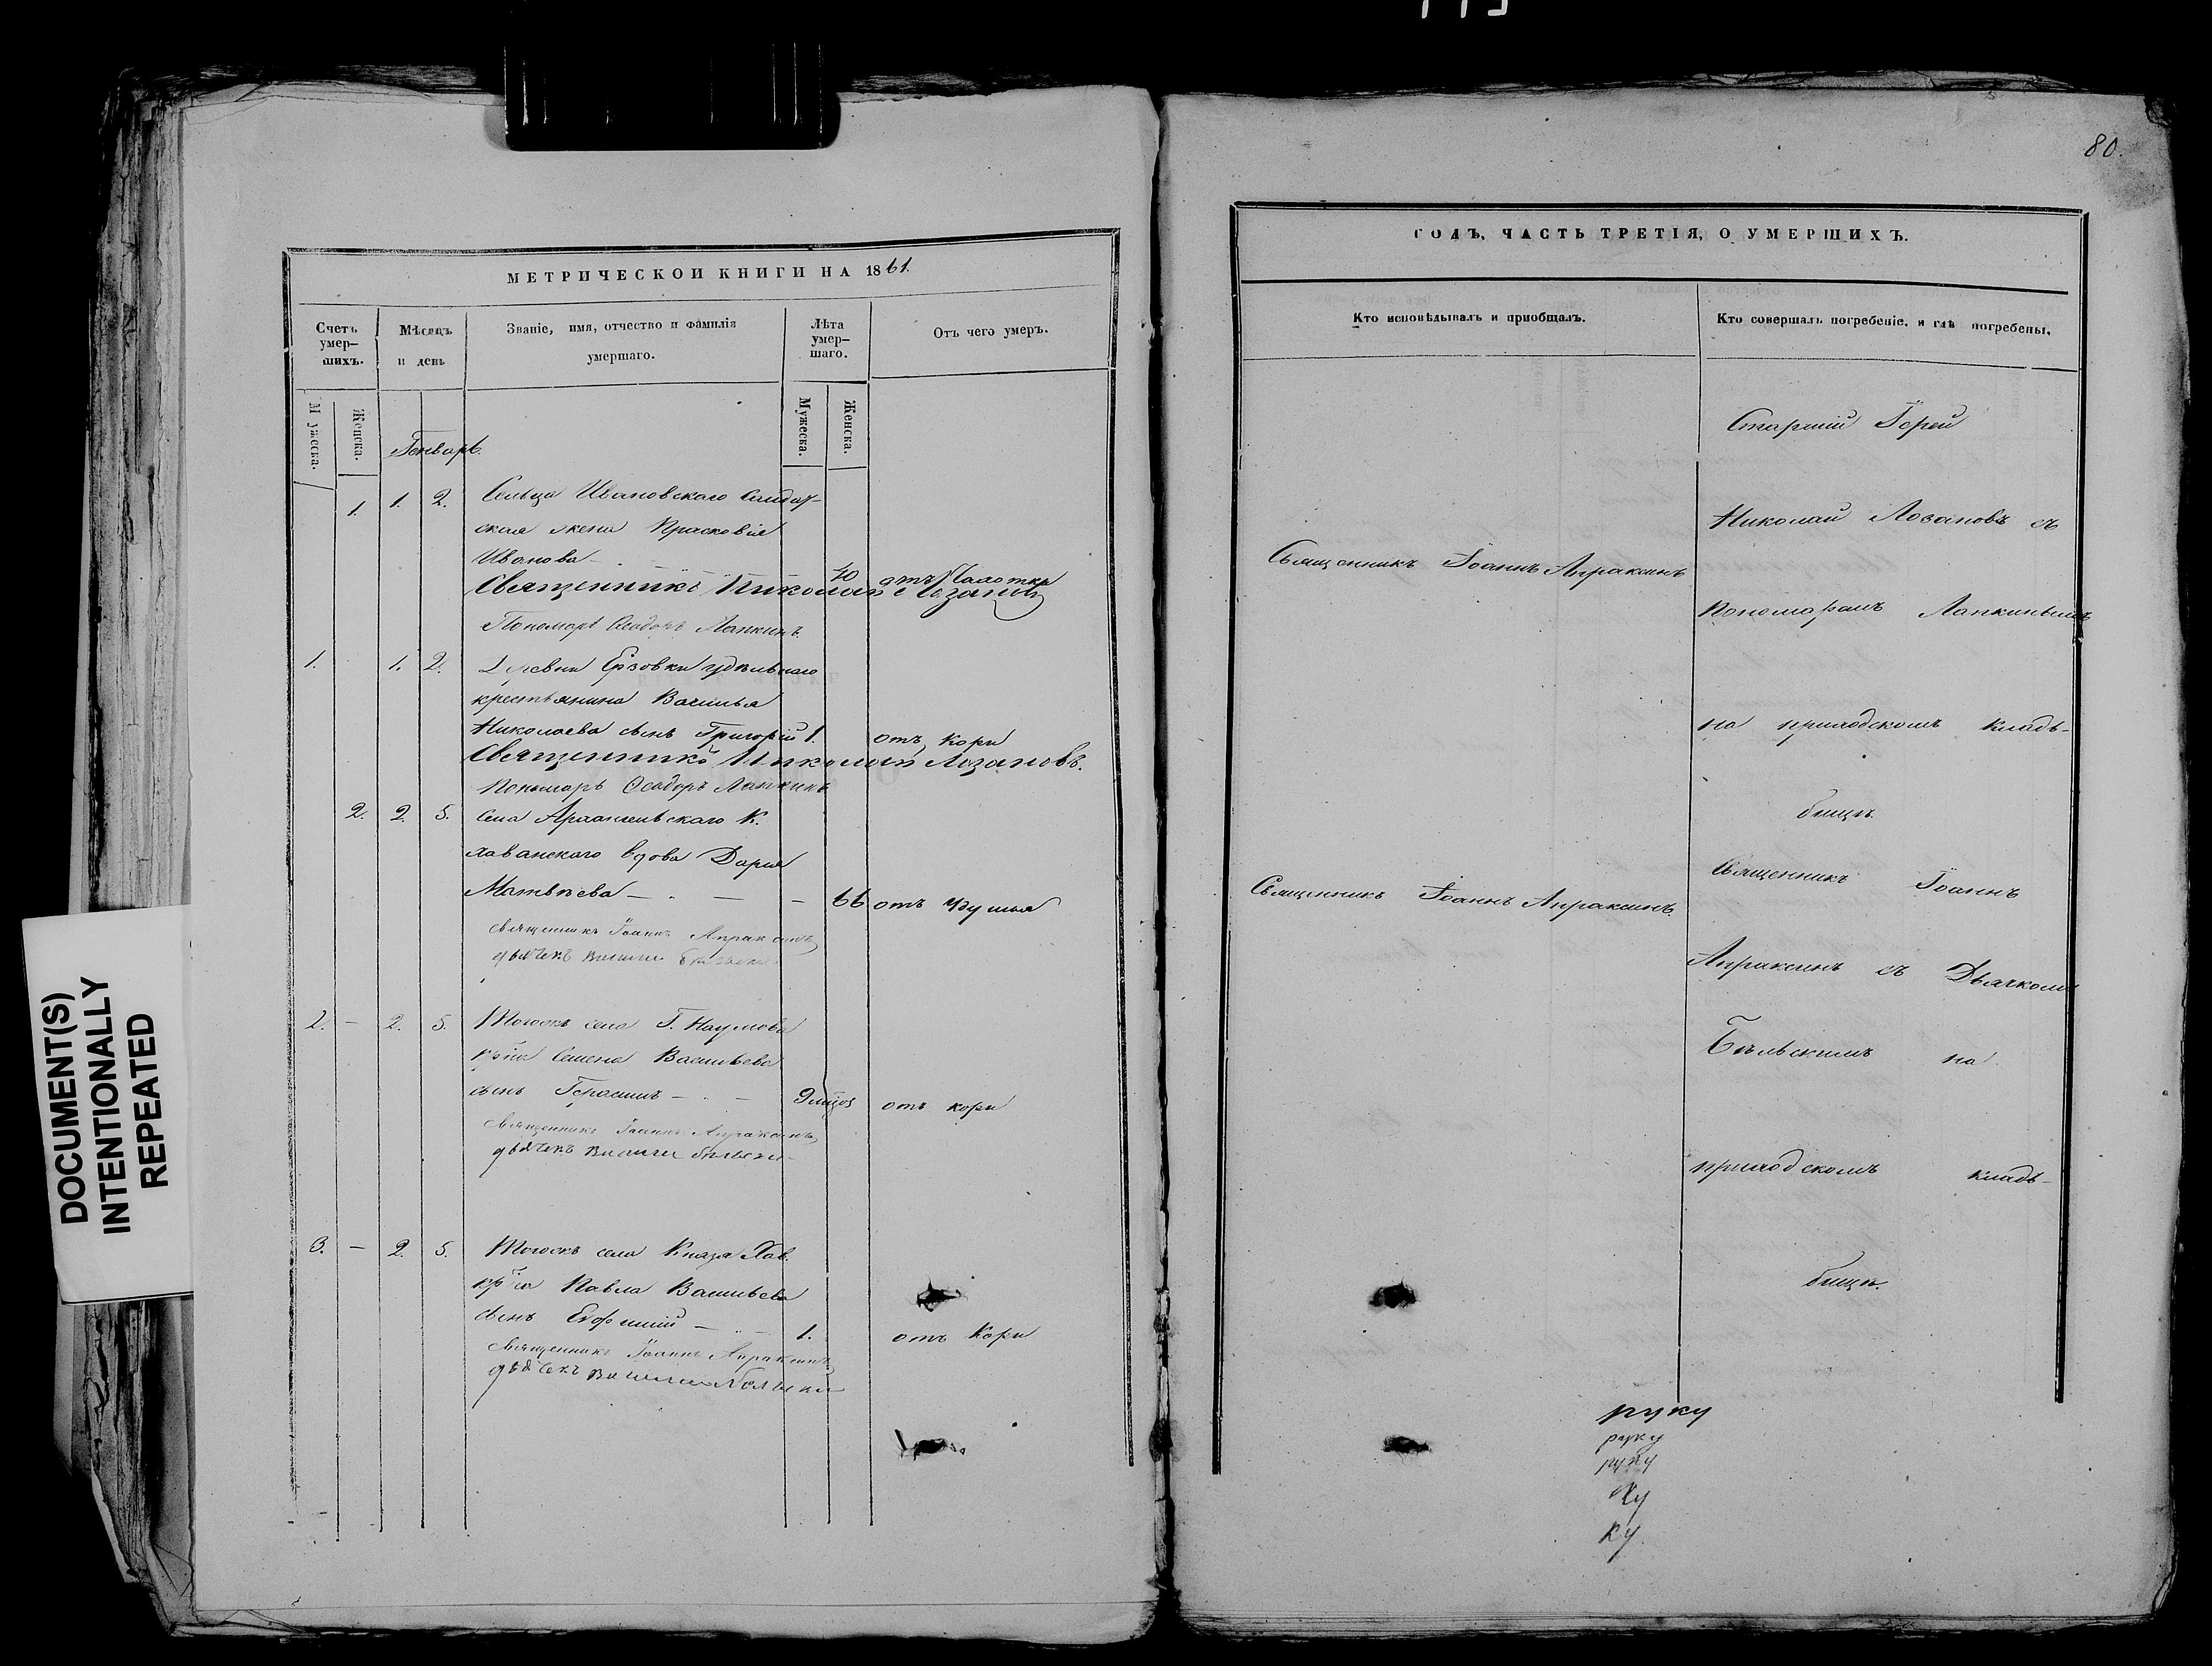 80.
МЕТРИЧЕСКОЙ КНИГИ НА 1861.
Счетъ умер-шихъ.
Мѣсяцъ и день
Званіе, имя, отчество и фамилія умершаго.
Лѣта умер-шаго.
Отъ чего умеръ.
Мужеска.
Женска.
Мужеска.
Женска.
Генварь.
1. 1. 2. Сельца Ивановскаго Солдат-
ская жена Прасковія
Иванова 40 отъ
Священникъ Николай Лозановъ
Пономарь Ѳеодоръ Лапкинъ
1. 1. 2. Деревни Ерзовки удѣльнаго
крестьянина Василья
Николаева сынъ Григорій 1. отъ кори
Священникъ Николай Лозановъ.
Пономарь Ѳеодоръ Лапкинъ
2. 2. 5. Села Архангельскаго К.
Хованскаго вдова Дарья
Матвѣева — — — 66 отъ удушья
Священникъ Іоаннъ Апраксинъ
дьячекъ Василій
2. — 2. 5. Тогожъ села Г. Наумова
кр-на Семена Васильева
сынъ Герасимъ — — отъ кори
Священникъ Іоаннъ Апраксинъ
дьячекъ Василій
3. — 2. 5. Тогожъ села Князя Хов.
кр-на Павла Васильева
сынъ Евфимій — — 1. отъ кори
Священникъ Іоаннъ Апраксинъ
дьячекъ Василій
ГОДЪ, ЧАСТЬ ТРЕТІЯ, О УМЕРШИХЪ.
Кто исповѣдывалъ и пріобщалъ.
Кто совершалъ погребеніе, и гдѣ погребены.
Старшій Іерей
Николай Лозановъ съ
Священникъ Іоаннъ Апраксинъ
Пономаремъ Лапкинымъ
на приходскомъ клад-
бищѣ.
Священникъ Іоаннъ
Священникъ Іоаннъ Апраксинъ.
Апраксинъ съ Дьячкомъ
Бѣльскимъ на
приходскомъ клад-
бищѣ.
руку
руку
руку
ку
ку.
DOCUMENT(S)
INTENTIONALLY
REPEATED